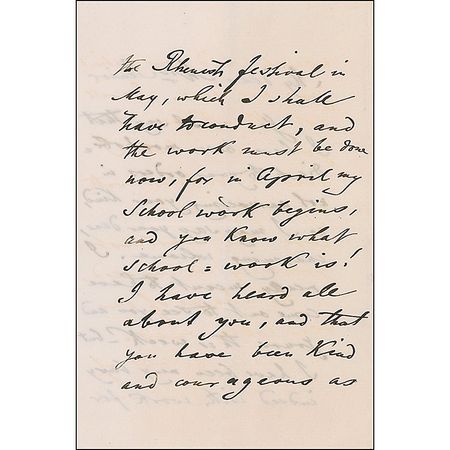 the Rhenish festival in
May, which I shall
have to conduct, and
the work must be done
now, for in April my
School work begins,
and you know what
school=work is!
I have heard all
about you, and that
you have been kind
and courageous as